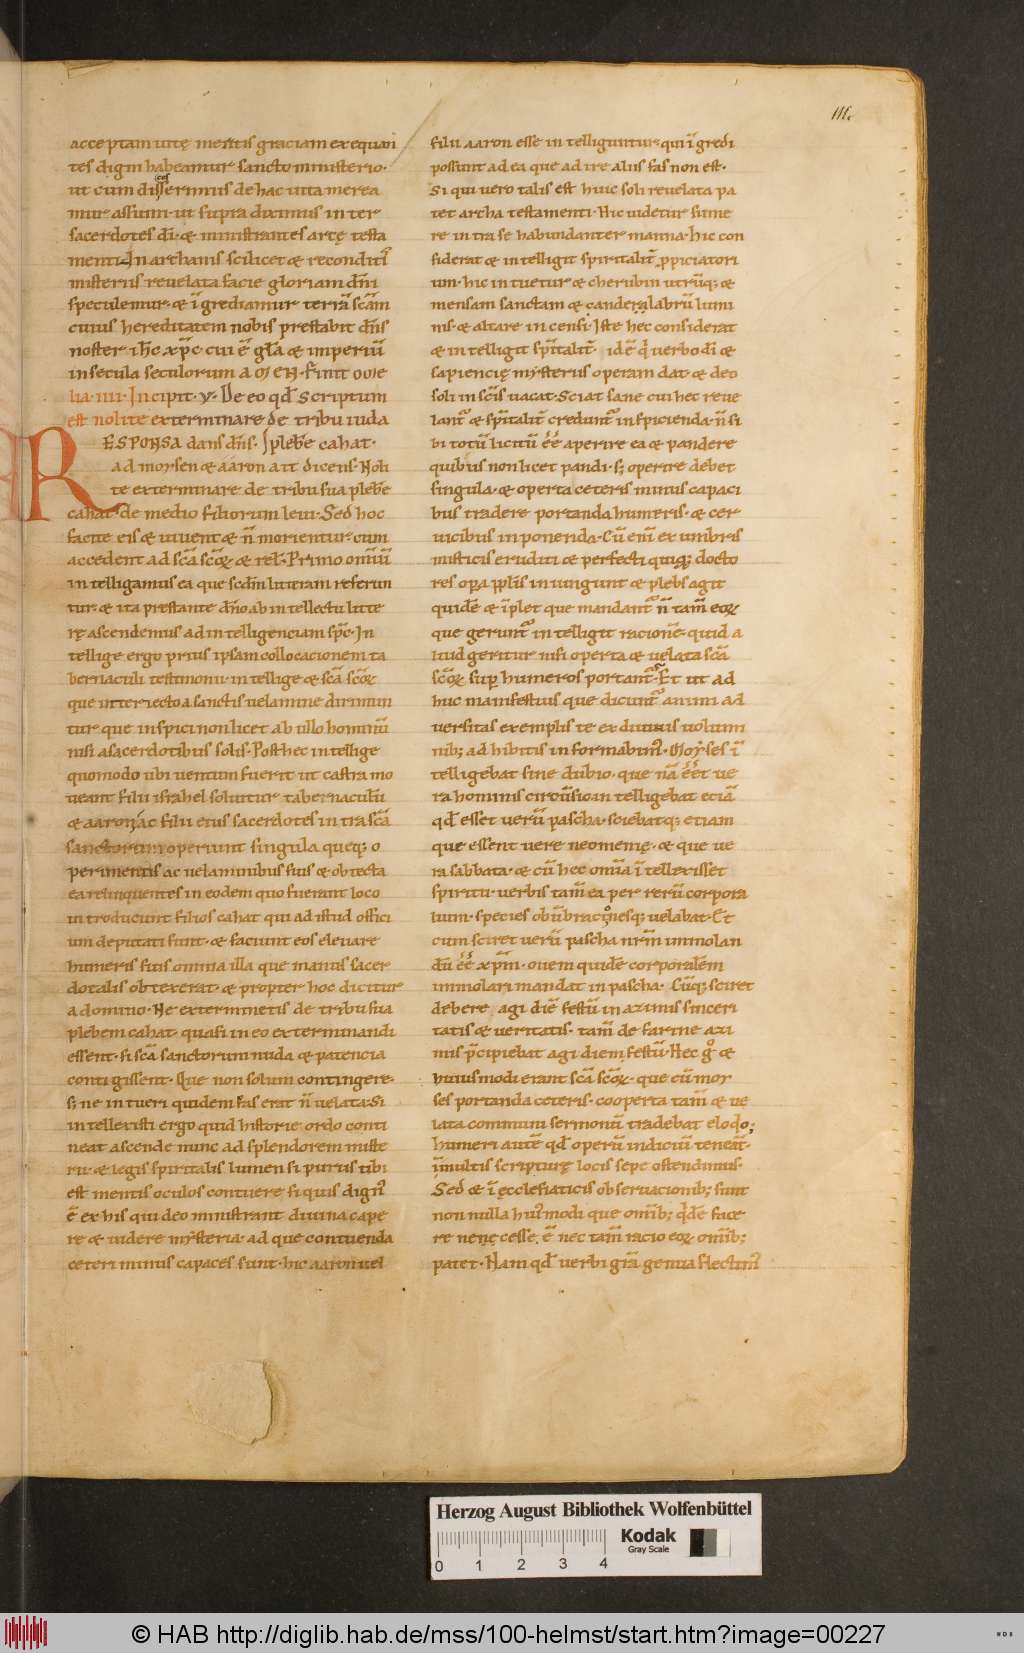 111.
acceptam uitę mentis graciam exequan
tes digni habeamur sancto ministerio·
ut cum disserimus de hac uita merea
mur assumi· ut supra diximus inter
sacerdotes di· & ministrantes artę testa
menti· In archanis scilicet & reconditi
misteriis reuelata facie gloriam dn̄i
speculemur· & īgrediamur terrā scām
cuius hereditatem nobis prestabit dn̄s
noster ih̄c xp̄c cui ē gl̄a & imperiū
in secula seculorum AMEN· Finit ome
lia· IIII· Incipit· V· De eo qd̄ scriptum
est nolite exterminare de tribu iuda
RESPONSA dans dn̄s· plebē cahat·
ad moysen & aaron ait dicens· Noli
te exterminare de tribu sua plebē
cahat· de medio filiorum leui· Sed hoc
facite eis & uiuent & n̄ morientur· cum
accedent ad scā scōꝝ & rel̄· Primo omīū
intelligamus ea que scdm̄ litteram referun
tur· & ita prestante dn̄o ab intellectu litte
rę ascendemus ad intelligenciam sp̄c· In
tellige ergo prius ipsam collocacionem ta
bernaculi testimonii· intellige & scā scōꝝ
que interiecto a sanctis uelamine dirimun
tur que inspici non licet ab ullo hominū
nisi a sacerdotibus solis· Post hec intellige
quomodo ubi uentum fuerit ut castra mo
ueant filii israhel soluitur tabernaculū
& aaron ac filii eius sacerdotes intra scā
sanctorum operiunt singula queq; o
perimentis ac uelaminibus suis & obtecta
ea relinquentes in eodem quo fuerant loco
introducunt filios cahat qui ad istud offici
um deputati sunt· & faciunt eos eleuare
humeris suis omnia illa que manus sacer
dotalis obtexerat· & propter hoc dicitur
a domino· Ne exterminetis de tribu sua
plebem cahat· quasi in eo exterminandi
essent· si scā sanctorum nuda & patencia
contigissent· Que non solum contingere·
s; ne intueri quidem fas erat n̄ uelata· Si
intellexisti ergo quid historie ordo conti
neat ascende nunc ad splendorem miste
rii· & legis spiritalis lumen si purus tibi
est mentis oculos contuere si quis dign
ē ex his qui deo ministrant diuina cape
re & uidere mẏsteria· ad que contuenda
ceteri minus capaces sunt· hic aaron uel
filii aaron esse intelliguntur qui īgredi
possunt ad ea que adire aliis fas non est·
Si qui uero talis est huic soli reuelata pa
tet archa testamenti· Hic uidetur sume
re intra se habundanter manna· hic con
siderat & intelligit spiritalit̄ ꝓpiciatori
um· hic intuetur & cherubin utrūq; &
mensam sanctam & candelabrū lumi
nis· & altare incensi· Iste hec considerat
& intelligit spīritalit̄· idē q̄ uerbo dī &
sapiencię mẏsteriis operam dat· & deo
soli in scīs uacat· Sciat sane cui hec reue
lant̄ & spīritalit̄ credunt̄ inspicienda· n̄ si
bi totū licitū ēē aperire ea & pandere
quibus non licet pandi· s; operire debet
singula· & operta ceteris minus capaci
bus tradere portanda humeris· & cer
uicibus inponenda· Cū enī ex umbris
misticis eruditi & perfecti quiq; docto
res opa ꝓplīs iniungunt & plebs agit
quidē & īplet que mandant̄ n̄ tam̄ eoꝝ
que gerunt̄ intelligit racionē· quid a
liud geritur nisi operta & uelata scā
scōꝝ sup̄ humeros portant̄· Et ut ad
huc manifestius que dicunt̄ animi ad
uersitas exemplis te ex diuinis uolumi
nib; adhibitis informabim̄· Moyses ī
telligebat sine dubio· que nā ēēt ue
ra hominis circūsio· intelligebat etiā
qd̄ esset uerū pascha· sciebatq; etiam
que essent uere neomenię· & que ue
ra sabbata· & cū hec omīa ītellexisset
spiritu· uerbis tam̄ ea per rerū corpora
lium· species obūbracionesq; uelabat· Et
cum sciret uerū pascha nr̄m immolan
dū ēē xp̄m· ouem quidē corporalēm
immolari mandat in pascha· Cūq; sciret
debere agi diē festū in azimis sinceri
tatis & ueritatis· tam̄ de farine azi
mis p̄cipiebat agi diem festū· Hec g̊ &
huiusmodi erant scā scōꝝ· que cū moy
ses portanda ceteris· cooperta tam̄ & ue
lata communi sermonū tradebat eloq̊;
humeri autē qd̄ operū indiciū teneat̄·
ī multis scripturę locis sepe ostendimus·
Sed & ī ęcclesiaticis obseruacionib; sunt
non nulla hui̾modi que omīb; qdē face
re nenęcesse ē nec tam̄ racio eoꝝ omīb;
patet· Nam qd̄ uerbi grā genua flectim̄
Herzog August Bibliothek Wolfenbüttel
0 1 2 3 4
Kodak
Gray Scale
© HAB http://diglib.hab.de/mss/100-helmst/start.htm?image=00227